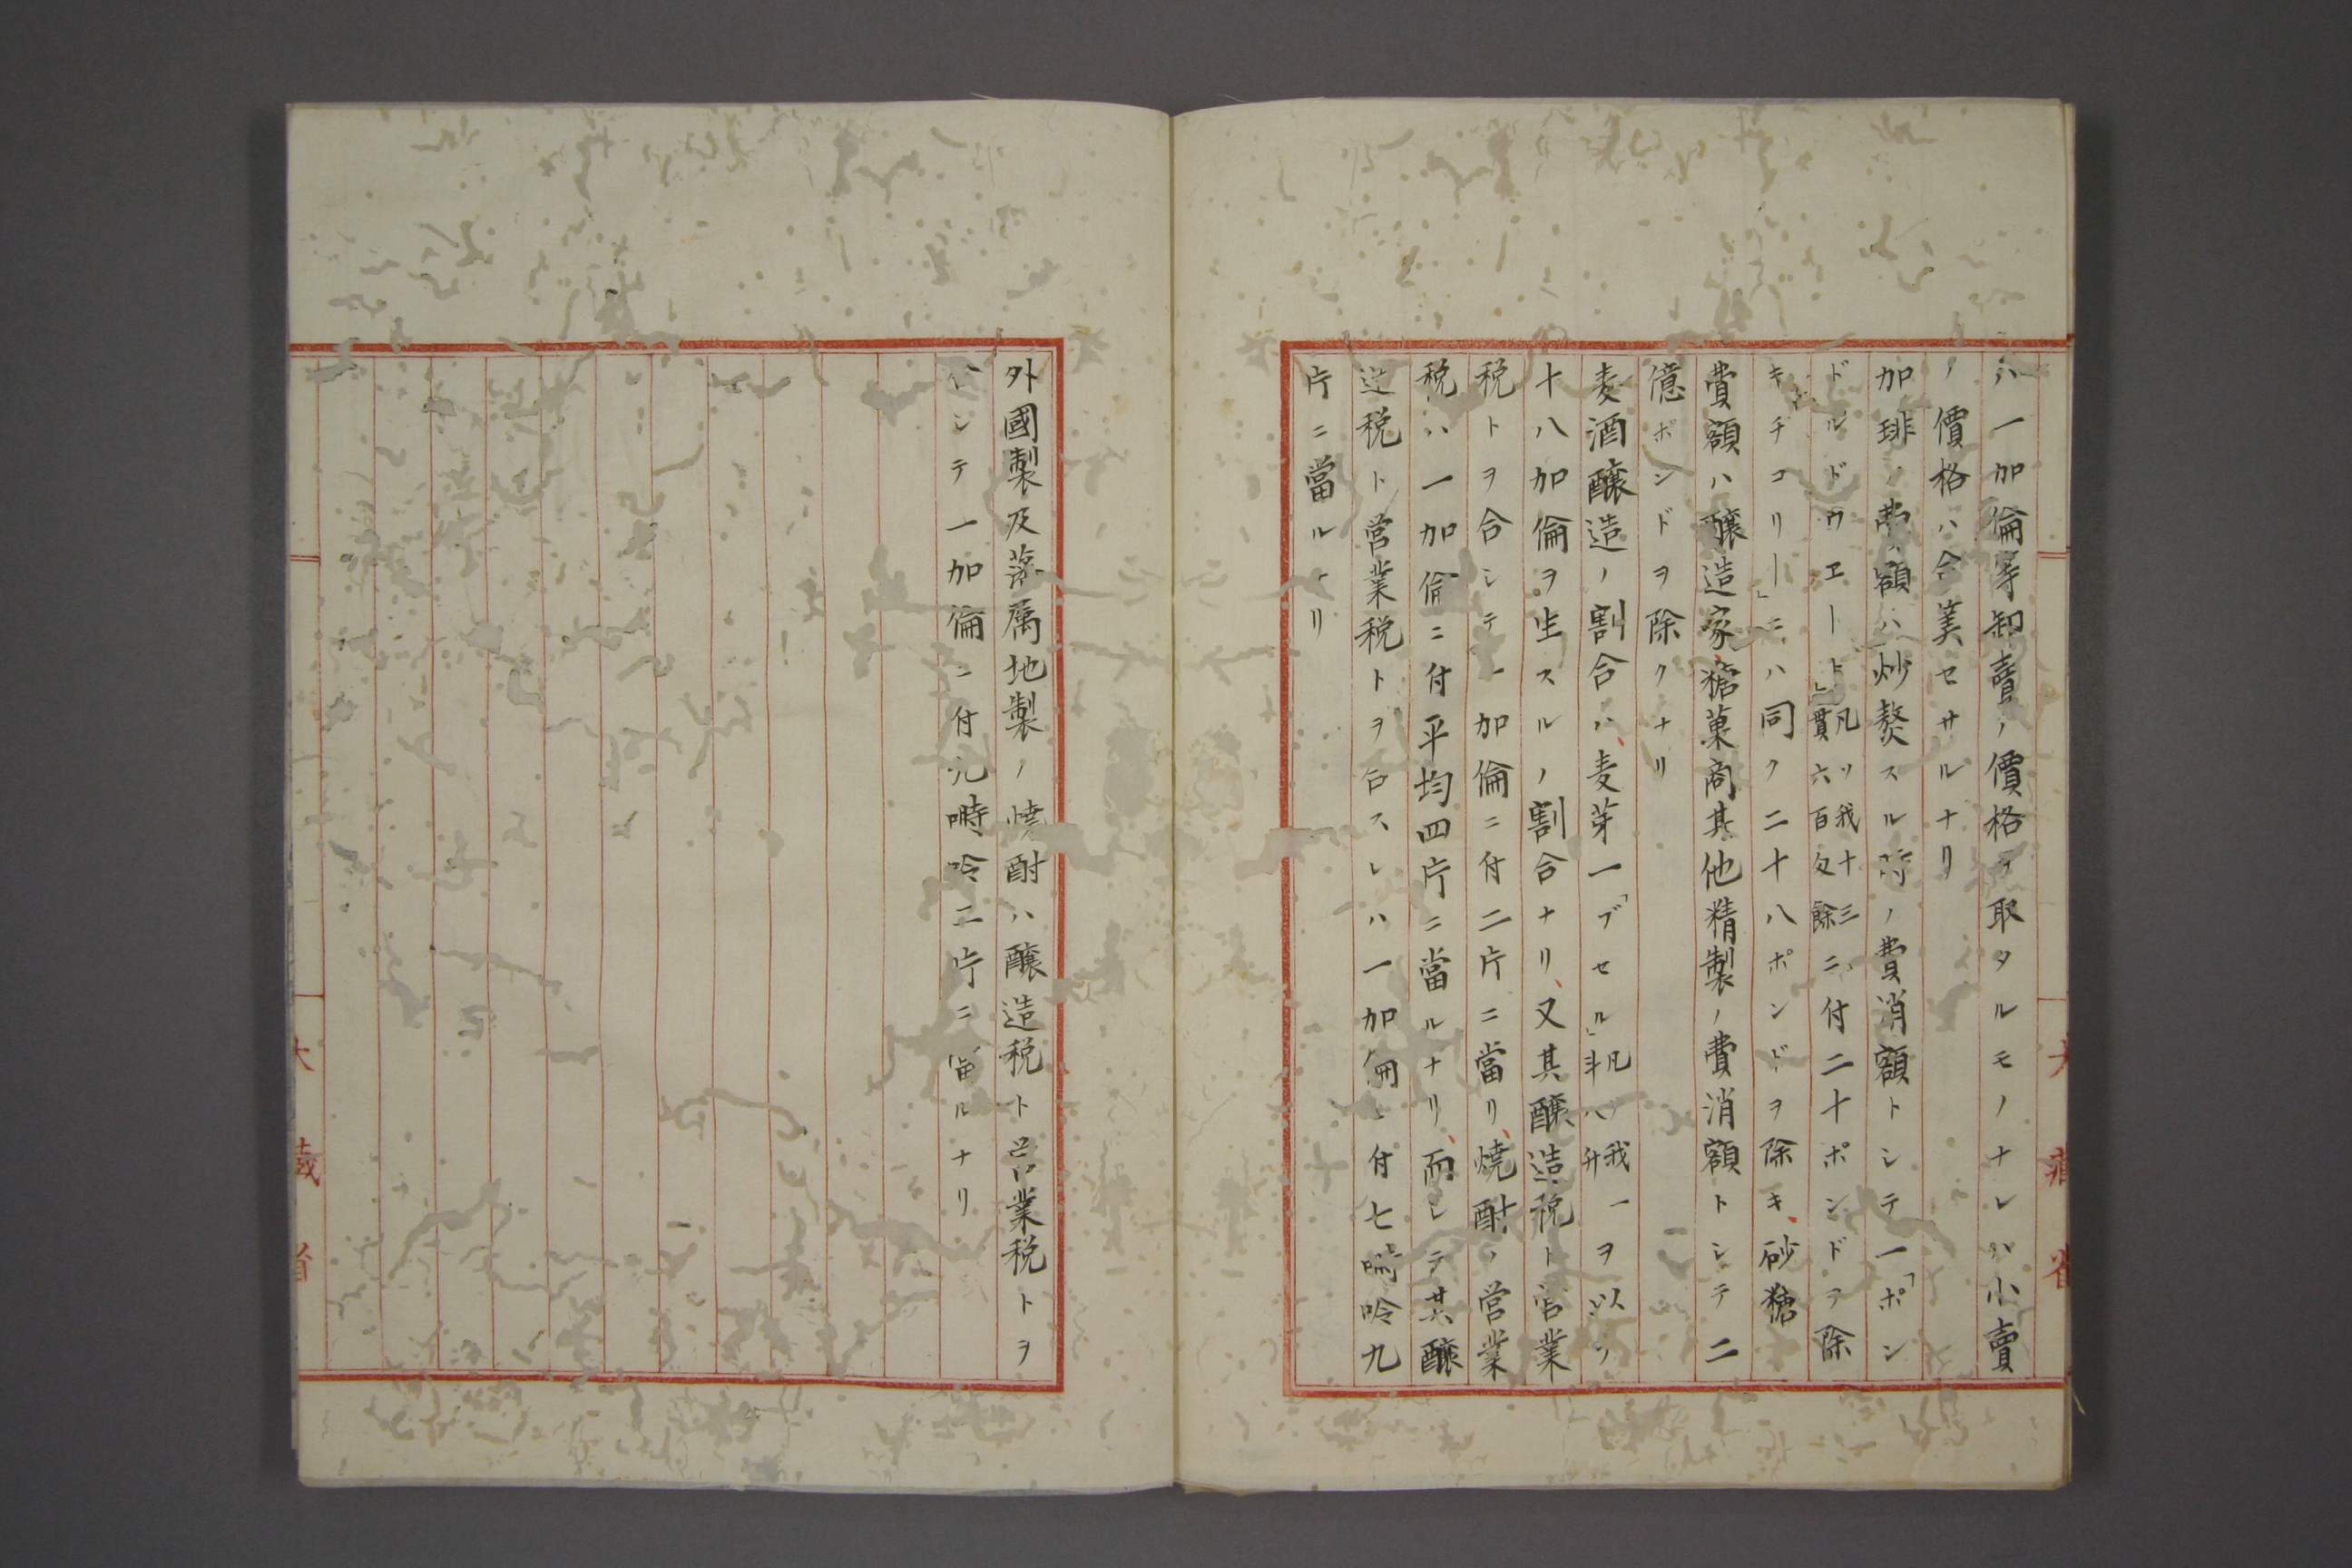 ハ一加倫等卸賣ノ價格ヲ取タルモノナレハ小賣
ノ價格ハ合美セサルナリ
加琲ノ費額ハ炒熬スル時ノ費消額トシテ一「ポン
ドルドウエート」凡ソ我十三貫六百匁餘ニ付二十ポンドヲ除
キチコリー」ニハ同ク二十八ポンドヲ除キ、砂糖
費額ハ醸造家糖菓商其他精製ノ費消額トシテ二
億ポンドヲ除クナリ
麦酒醸造ノ割合ハ、麦芽一「ブセル」凡ソ我一斗八升ヲ以テ
十八加倫ヲ生スルノ割合ナリ、又其醸造税ト営業
税トヲ合シテ一加倫ニ付二片ニ當リ、焼酎ノ営業
税ハ一加倫ニ付平均四片ニ當ルナリ、而シテ其醸
造税ト営業税トヲ合スレハ一加倫ニ付七嘶呤九
片ニ當ルナリ
外國製及藩属地製ノ焼酎ハ醸造税ト営業税トヲ
合シテ一加倫ニ付九嘶呤二片ニ當ルナリ
大藏省
大藏省